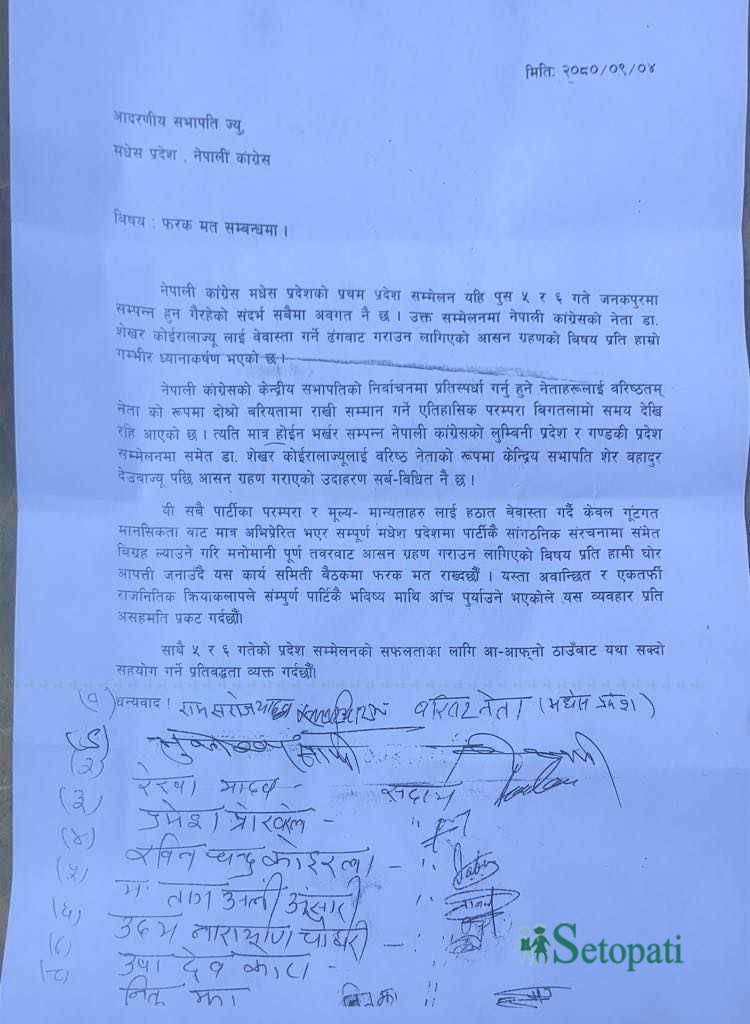 मिति: २०८०/०९/०४
आदरणीय सभापति ज्यु,
मधेस प्रदेश , नेपाली कांग्रेस
विषय : फरक मत सम्बन्धमा ।
नेपाली कांग्रेस मधेस प्रदेशको प्रथम प्रदेश सम्मेलन यहि पुस ५ र ६ गते जनकपुरमा
सम्पन्न हुन गैरहेको संदर्भ सबैमा अवगत नै छ । उक्त सम्मेलनमा नेपाली कांग्रेसको नेता डा.
शेखर कोईरालाज्यू लाई बेवास्ता गर्ने ढंगवाट गराउन लागिएको आसन ग्रहणको विषय प्रति हाम्रो
गम्भीर ध्यानाकर्षण भएको छ ।
नेपाली कांग्रेसको केन्द्रीय सभापतिको निर्वाचनमा प्रतिस्पर्धा गर्नु हुने नेताहरूलाई वरिष्ठतम्
नेता को रूपमा दोश्रो बरियतामा राखी सम्मान गर्ने एतिहासिक परम्परा बिगतलामो समय देखि
रहि आएको छ । त्यति मात्र होईन भर्खर सम्पन्न नेपाली कांग्रेसको लुम्बिनी प्रदेश र गण्डकी प्रदेश
सम्मेलनमा समेत डा. शेखर कोईरालाज्यूलाई वरिष्ठ नेताको रूपमा केन्द्रिय सभापति शेर बहादुर
देउवाज्यू पछि आसन ग्रहण गराएको उदाहरण सर्ब-विधित नै छ ।
यी सबै पार्टीका परम्परा र मूल्य- मान्यताहरु लाई हठात बेवास्ता गर्दै केवल गूटगत
मानसिकता वाट मात्र अभिप्रेरित भएर सम्पूर्ण मधेश प्रदेशमा पार्टीकै सांगठनिक संरचनामा संमेत
विग्रह ल्याउने गरि मनोमानी पूर्ण तवरवाट आसन ग्रहण गराउन लागिएको बिषय प्रति हामी घोर
आपत्ती जनाउँदै यस कार्य समिती बैठकमा फरक मत राख्दछौं । यस्ता अवान्छित र एकतर्फी
राजनितिक क्रियाकलापले संम्पुर्ण पार्टिकै भविष्य माथि आंच पुर्याउने भएकोले यस व्यवहार प्रति
असहमति प्रकट गर्दछौं।
साथै ५ र ६ गतेको प्रदेश सम्मेलनको सफलताका लागि आ-आफ्नो ठाउँबाट यथा सक्दो
सहयोग गर्ने प्रतिबद्धता व्यक्त गर्दछौं।
धन्यवाद ! रामसरोज यादव वरिष्ठ नेता (मधेस प्रदेश)
(२)
(३) रेखा यादव - सदस्य
(४) उमेश
(५) चन्द्र कोइराला - "
(६) अली अंसारी "
उदय नारायण चौधरी - "
उषा देवकोटा - "
झा "
Setopati